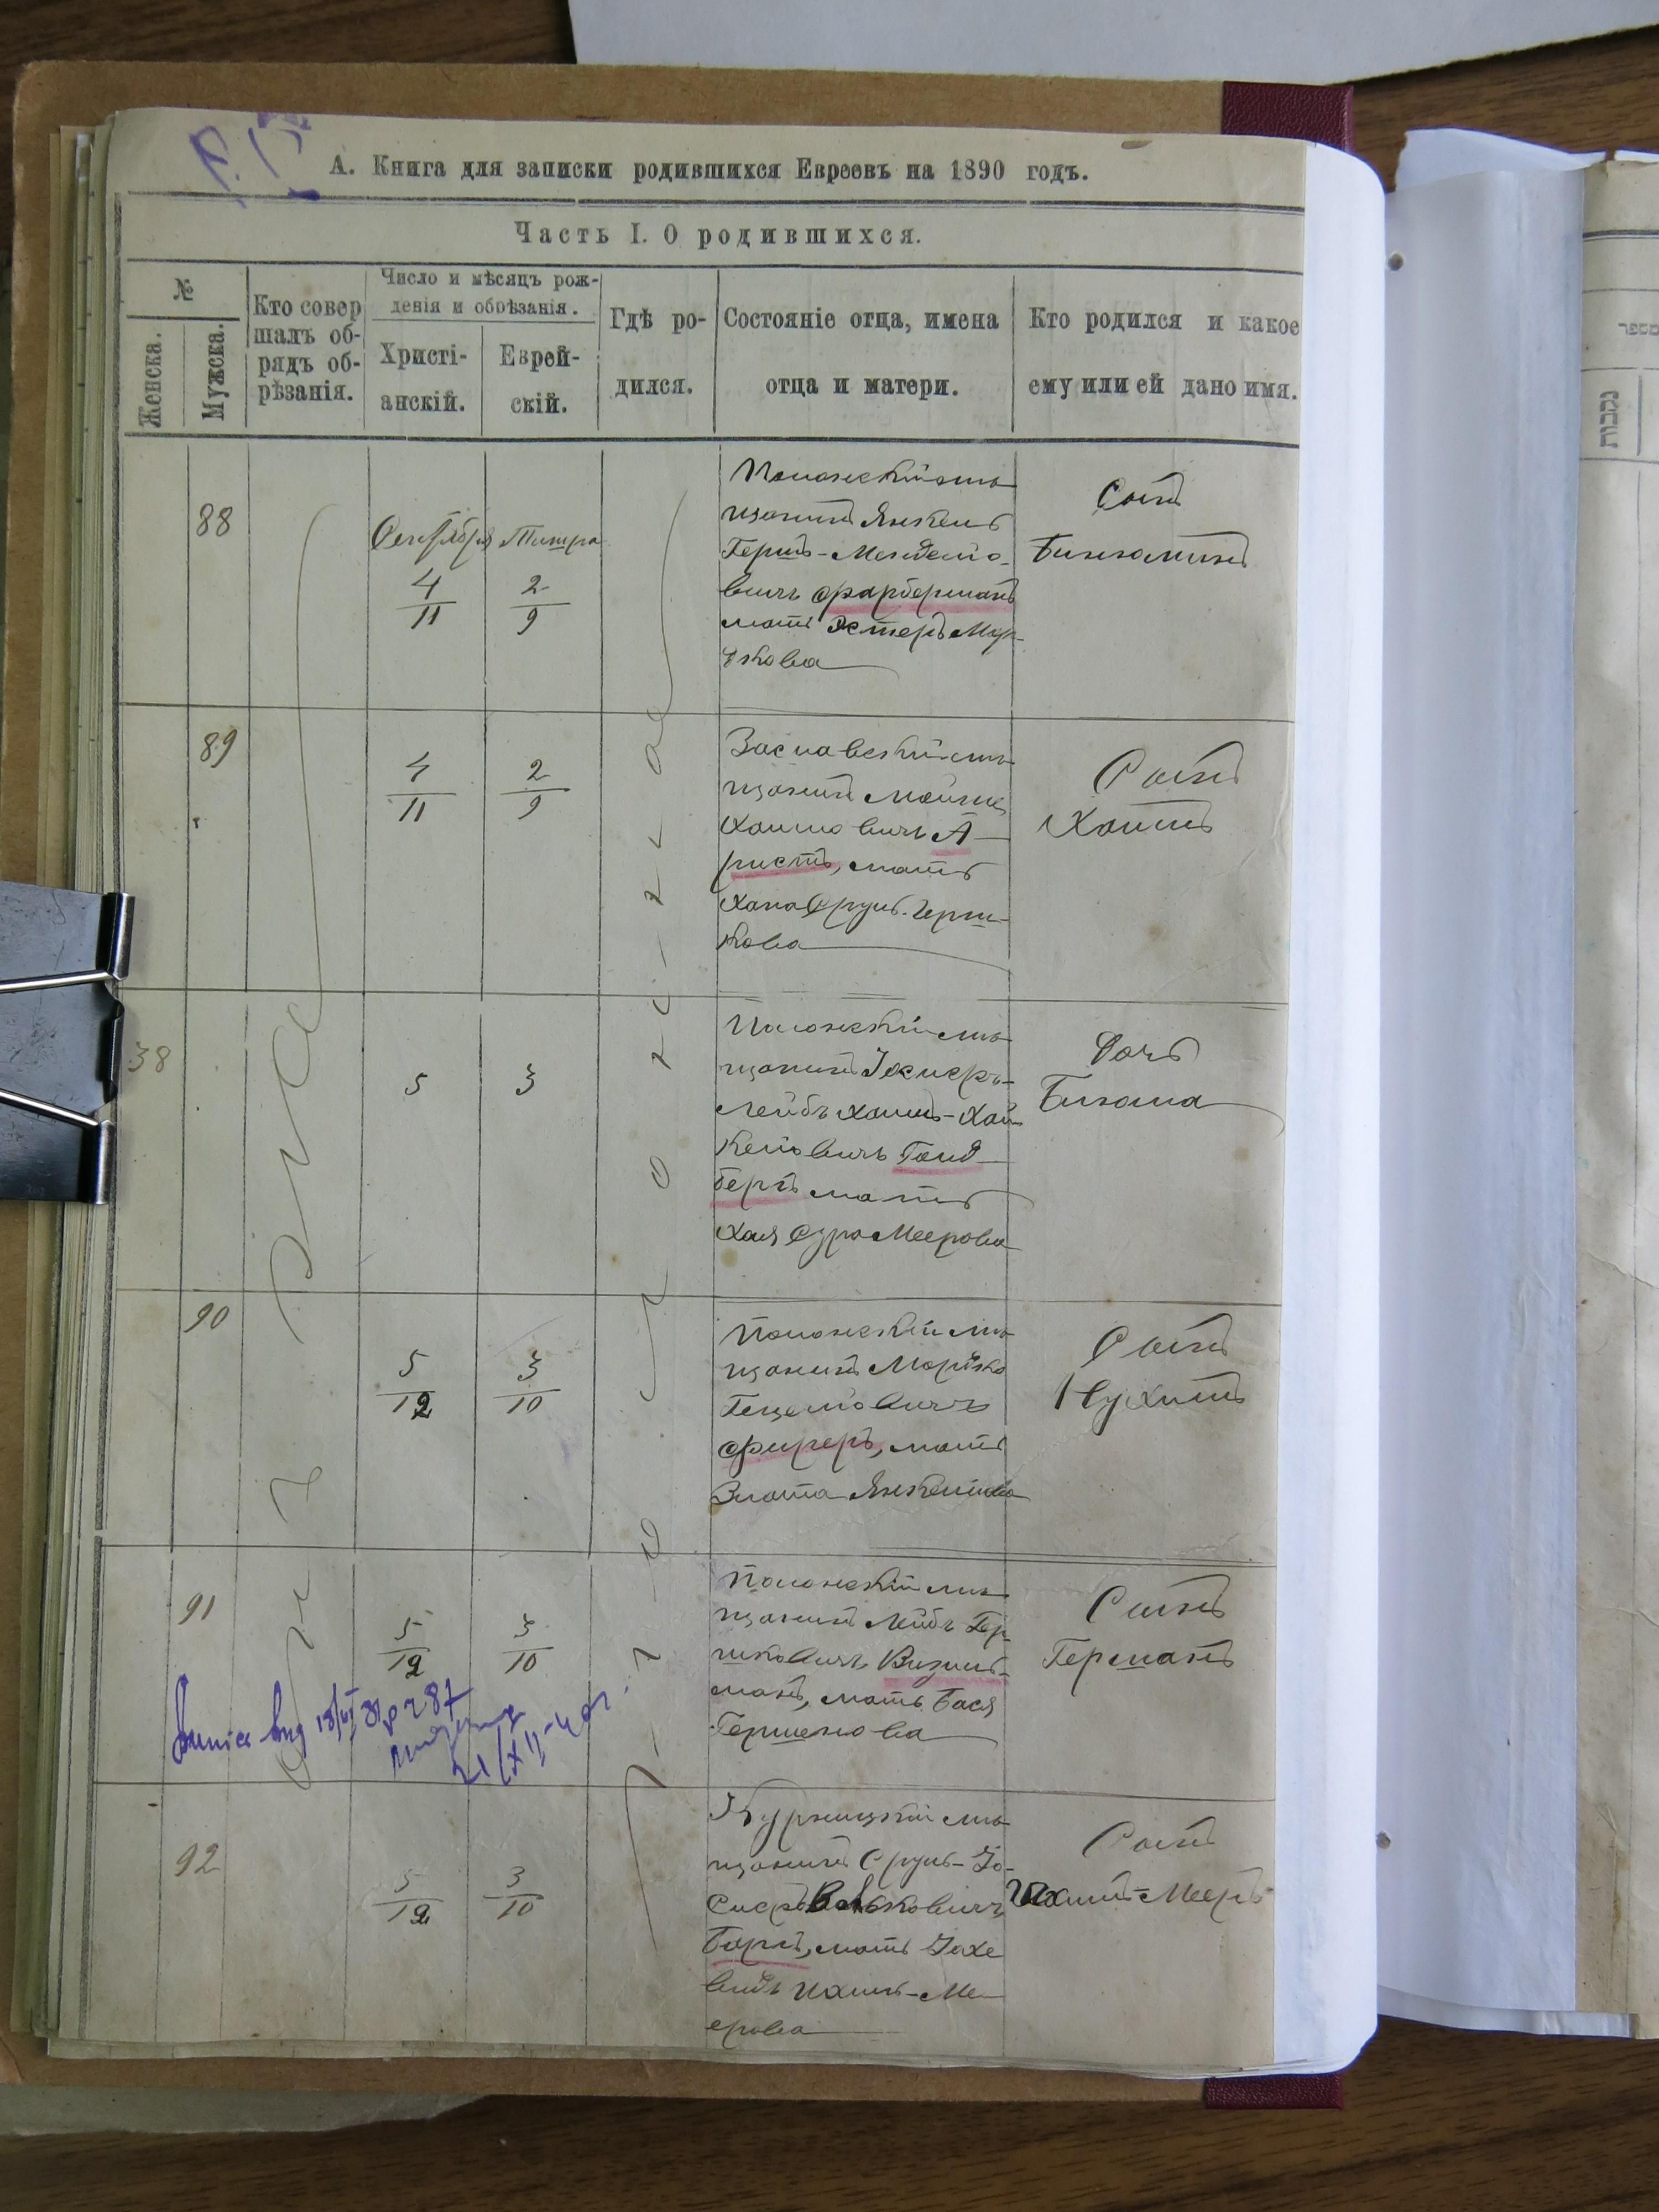 А. Книга для записки родившихся Евреевъ на 1890 годъ.
Часть I. О родившихся.
№
Женска.
Мужска.
Кто совер
шалъ об-
рядъ об-
рѣзанія.
Число и мѣсяцъ рож-
денія и обрѣзанія.
Христі-
анскій.
Еврей-
скій.
Гдѣ ро-
дился.
Состояніе отца, имена
отца и матери.
Кто родился и какое
ему или ей дано имя.
88
Сентября
4
11
Тишра
2
9
Полонскій мѣ
щанинъ Янкель
Гершъ-Менделіо-
вичъ Фарберманъ
мать Эстеръ Мор-
дкова
Сынъ
Биньоминъ
89
4
11
2
9
Заславскій мѣ
щанинъ Мойше
Хаимовичъ А-
ристъ, мать
Хана Сруль-Герш-
кова
Сынъ
Хаимъ
38
5
3
Полонскій мѣ
щанинъ Іосифъ-
Лейбъ Хаимъ-Хай
келіовичъ Голд
бергъ мать
Хая Сура Меерова
Дочь
90
5
12
3
10
Полонскій мѣ
щанинъ Мордко
Гецеліовичъ
Фиреръ, мать
Злата Янкеліова
Сынъ
Нухимъ
91
5
12
3
10
Полонскій мѣ
щанинъ Лейбъ Гер-
шковичъ Визель-
манъ, мать Бася
Гершенова
Сынъ
Германъ
92
5
12
3
10
мѣ
щанинъ Сруль-Іо-
сифъ Вольковичъ
мать Іохе
ведъ Ихилъ-Ме
ерова
Сынъ
Ихилъ-Мееръ